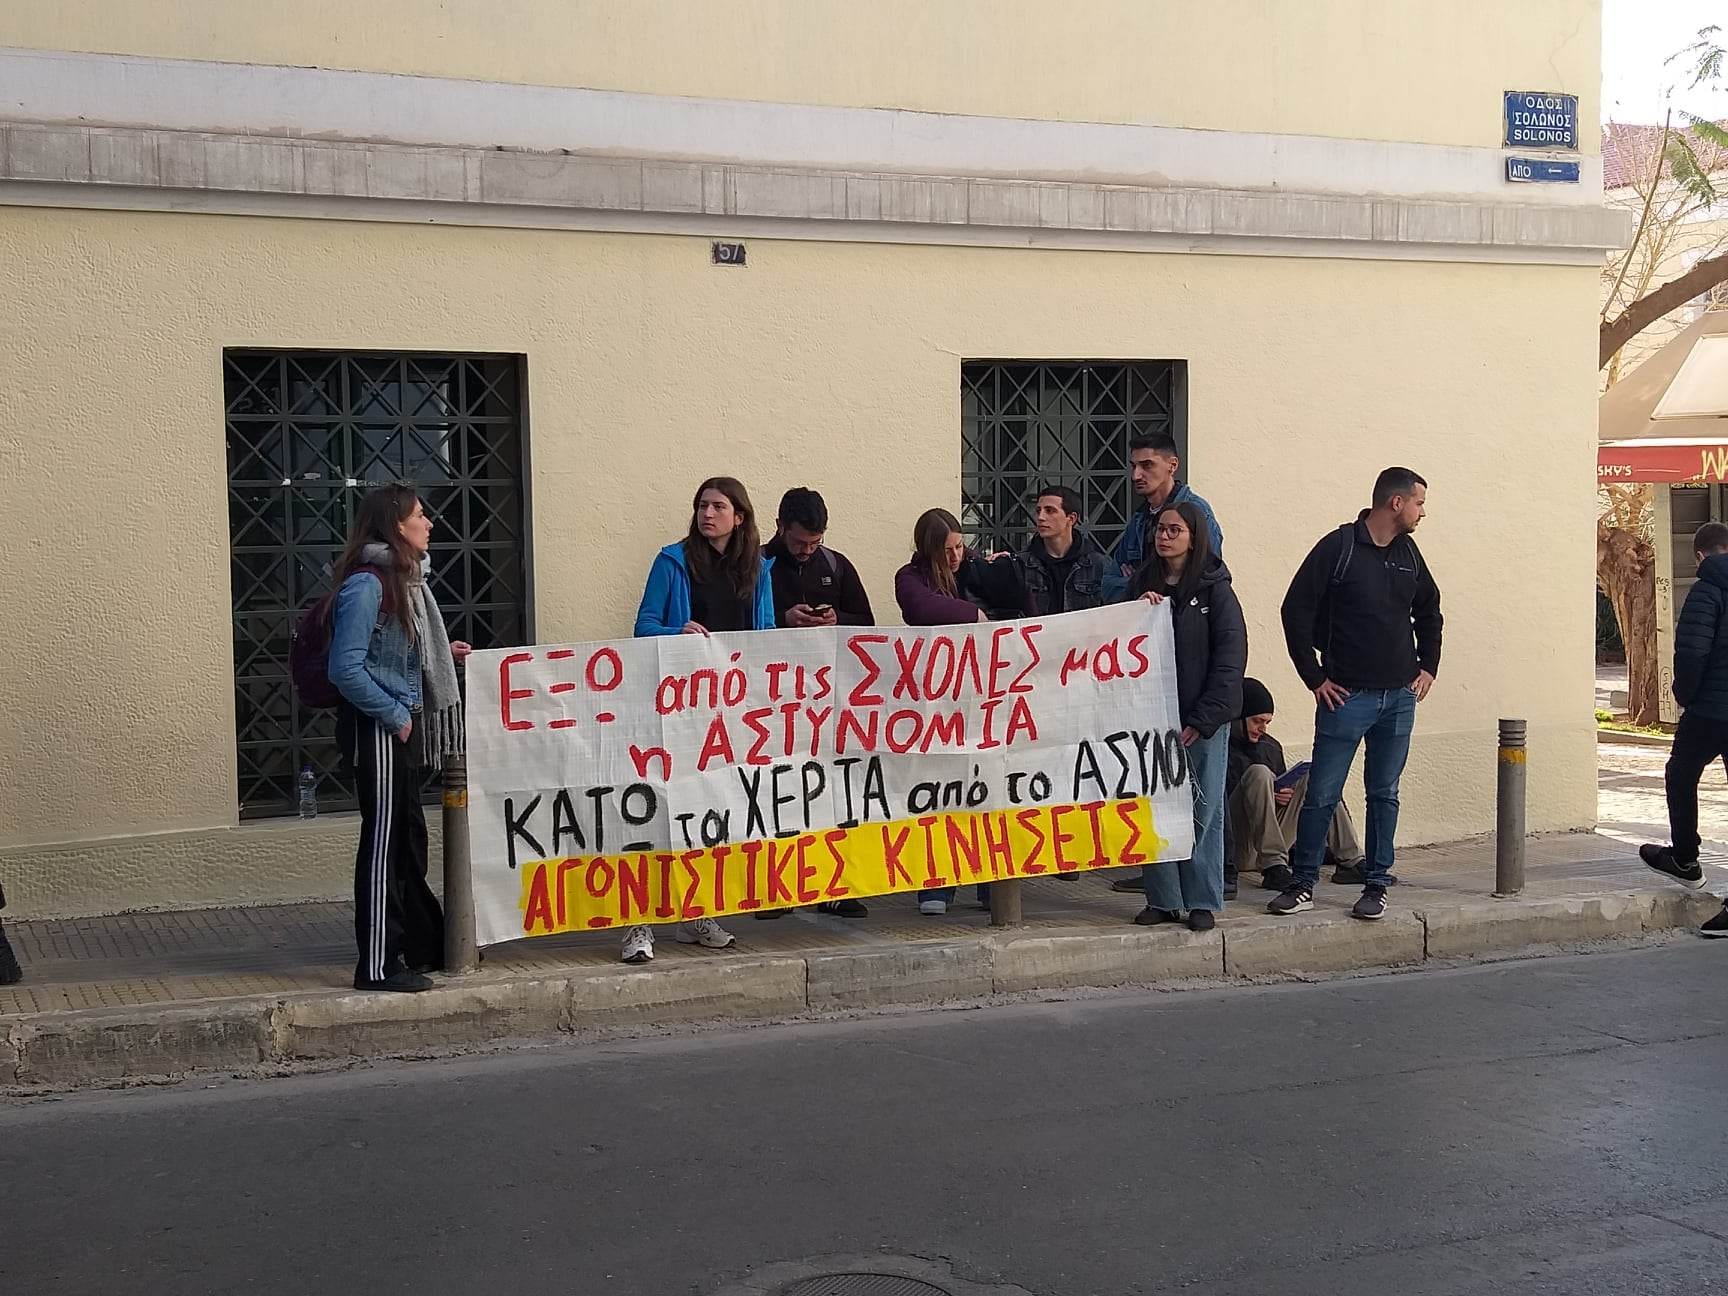 ΟΔΟΣ
ΣΟΛΩΝΟΣ
SOLONOS
ΑΠΟ ←
57
SKY'S
ΕΞΩ από τις ΣΧΟΛΕΣ μας
η ΑΣΤΥΝΟΜΙΑ
ΚΑΤΩ τα ΧΕΡΙΑ από το ΑΣΥΛΟ
ΑΓΩΝΙΣΤΙΚΕΣ ΚΙΝΗΣΕΙΣ